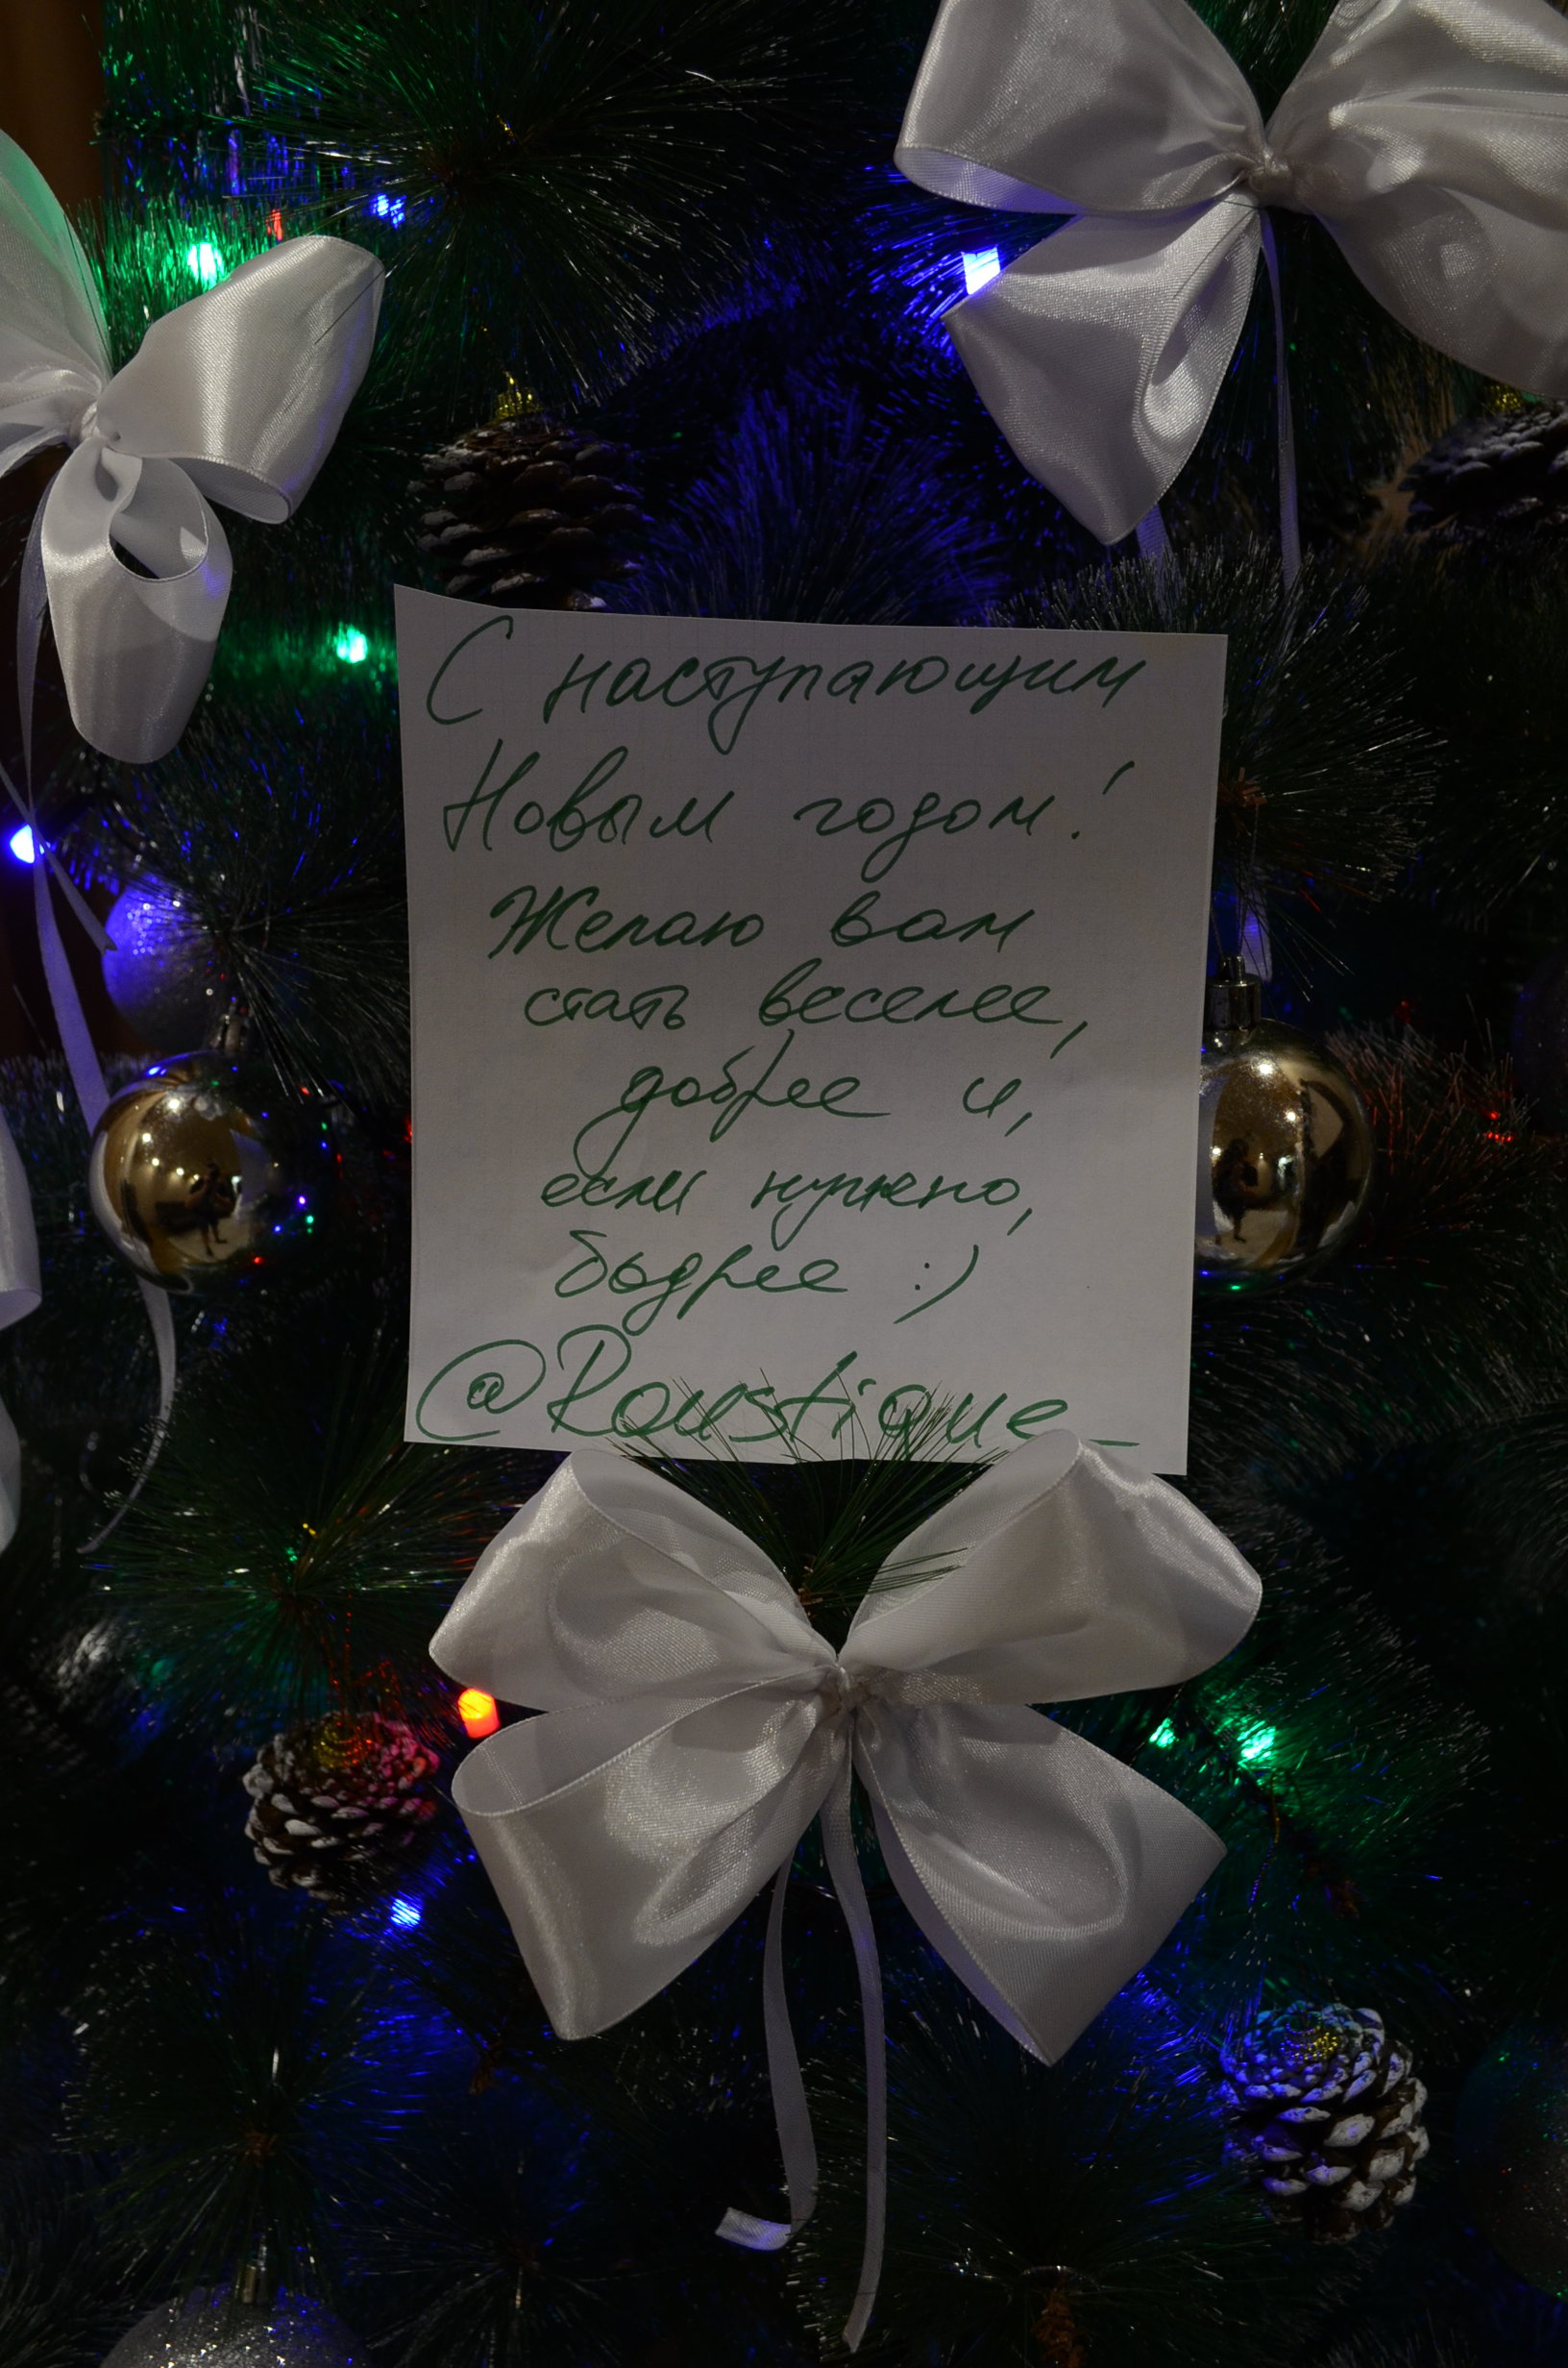 С наступающим
Новым годом!
Желаю вам
стать веселее,
добрее и,
если нужно,
бодрее :)
@Roustique_